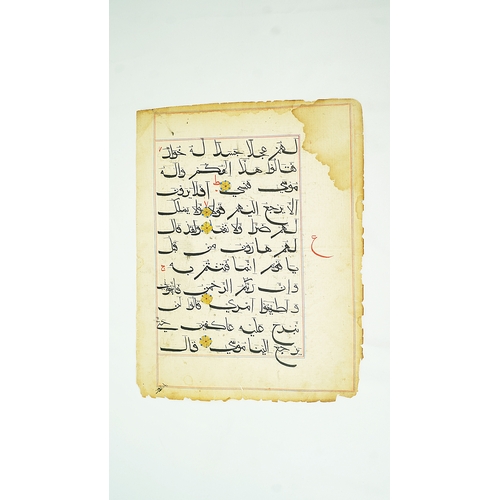 لهم عجلا جسدا له خوار
فقالوا هذا الهكم واله
موسي فنسي افلا يرون
الا يرجع اليهم قولا ولا يملك
لهم ضرا ولا نفعا ولقد قال
لهم هارون من قبل
يا قوم انما فتنتم به
وان ربكم الرحمن فاتبعوني
واطيعوا امري قالوا لن
نبرح عليه عاكفين حتي
يرجع الينا موسي قال
ع